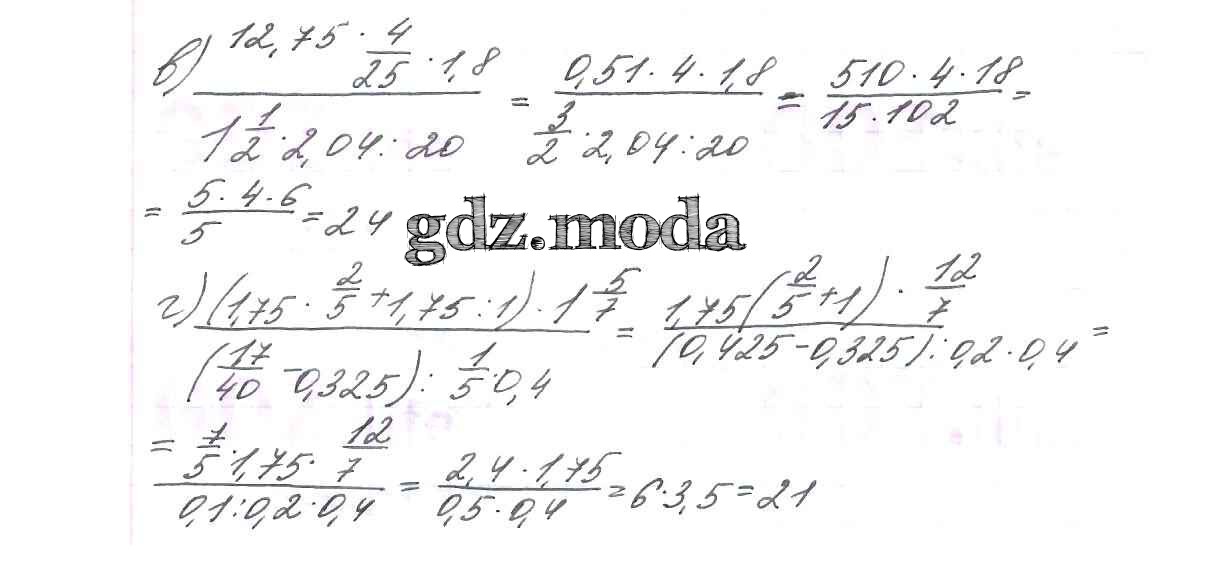 в) (12,75 · 4/25 · 1,8)/(1 1/2 · 2,04 : 20) = (0,51 · 4 · 1,8)/(3/2 · 2,04 : 20) = (510 · 4 · 18)/(15 · 102) =
= (5 · 4 · 6)/5 = 24
gdz.moda
г) ((1,75 · 2/5 + 1,75 : 1) · 1 5/7)/((17/40 - 0,325) : 1/5 · 0,4) = (1,75(2/5 + 1) · 12/7)/((0,425 - 0,325) : 0,2 · 0,4) =
= (7/5 · 1,75 · 12/7)/(0,1 : 0,2 · 0,4) = (2,4 · 1,75)/(0,5 · 0,4) = 6 · 3,5 = 21